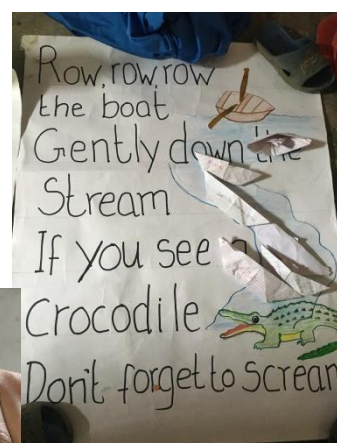 Row, row, row
the boat
Gently down the
Stream
If you see a
Crocodile
Don't forget to scream